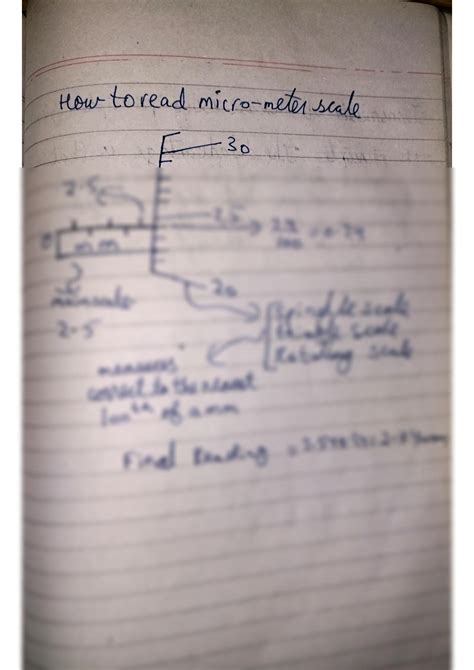 How to read micro-meter scale
30
2.5
25
0
mm
20
main scale
2.5
Spindle scale
thimble scale
Rotating scale
measures
correct to the nearest
100th of a mm
Final Reading =